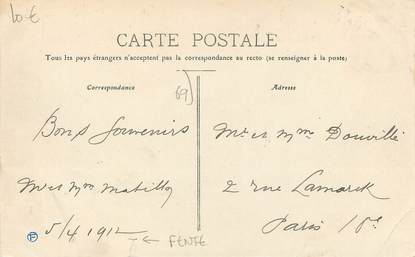 10 €
CARTE POSTALE
Tous les pays étrangers n'acceptent pas la correspondance au recto (se renseigner à la poste)
Correspondance
Adresse
69)
Bons Souvenirs
Mr et Mme
Mr et Mme
5/4 1912
← FENTE
F
2 rue Lamarck
Paris 18e